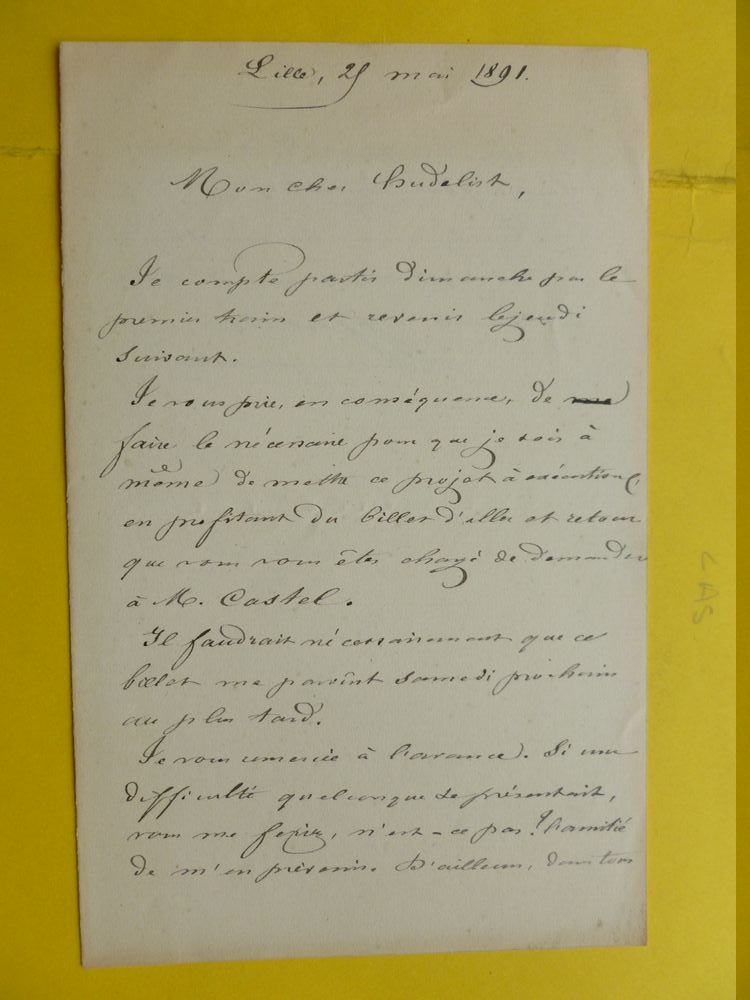 Lille, 25 mai 1891.
Mon cher Hudelist,
Je compte partir dimanche par le
premier train et revenir le jeudi
suivant.
Je vous prie, en conséquence, de me
faire le nécessaire pour que je sois à
même de mettre ce projet à exécution,
en profitant du billet d'aller et retour
que vous vous êtes chargé de demander
à M. Castel.
Il faudrait nécessairement que ce
billet me parvînt samedi prochain
au plus tard.
Je vous remercie à l'avance. Si une
difficulté quelconque se présentait,
vous me feriez, n'est-ce pas? l'amitié
de m'en prévenir. D'ailleurs, dans tous
LAS